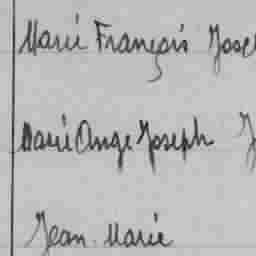 Marie François Jose
Marie Ange Joseph J
Jean Marie